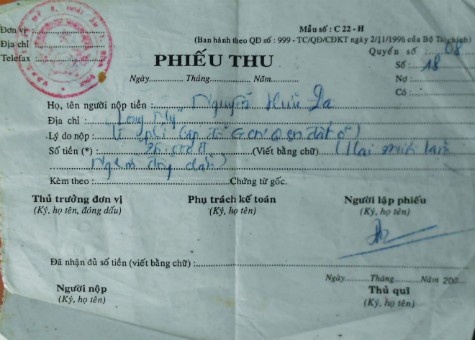 Đơn vị
Mẫu số : C 22 - H
Địa chỉ
(Ban hành theo QĐ số : 999 - TC/QĐ/CĐKT ngày 2/11/1996 của Bộ Tài chính)
Telefax
Quyển số 08
PHIẾU THU
Số : 18
Ngày Tháng Năm
Nợ :
Có :
Họ, tên người nộp tiền : Nguyễn Hữu Da
Địa chỉ : Long Mỹ
Lý do nộp :
Số tiền (*) : (Viết bằng chữ) (Hai
Kèm theo : Chứng từ gốc.
Thủ trưởng đơn vị Phụ trách kế toán Người lập phiếu
(Ký, họ tên, đóng dấu) (Ký, họ tên) (Ký, họ tên)
Đã nhận đủ số tiền (viết bằng chữ) :
Ngày Tháng Năm 200
Người nộp Thủ quĩ
(Ký, họ tên) (Ký, họ tên)